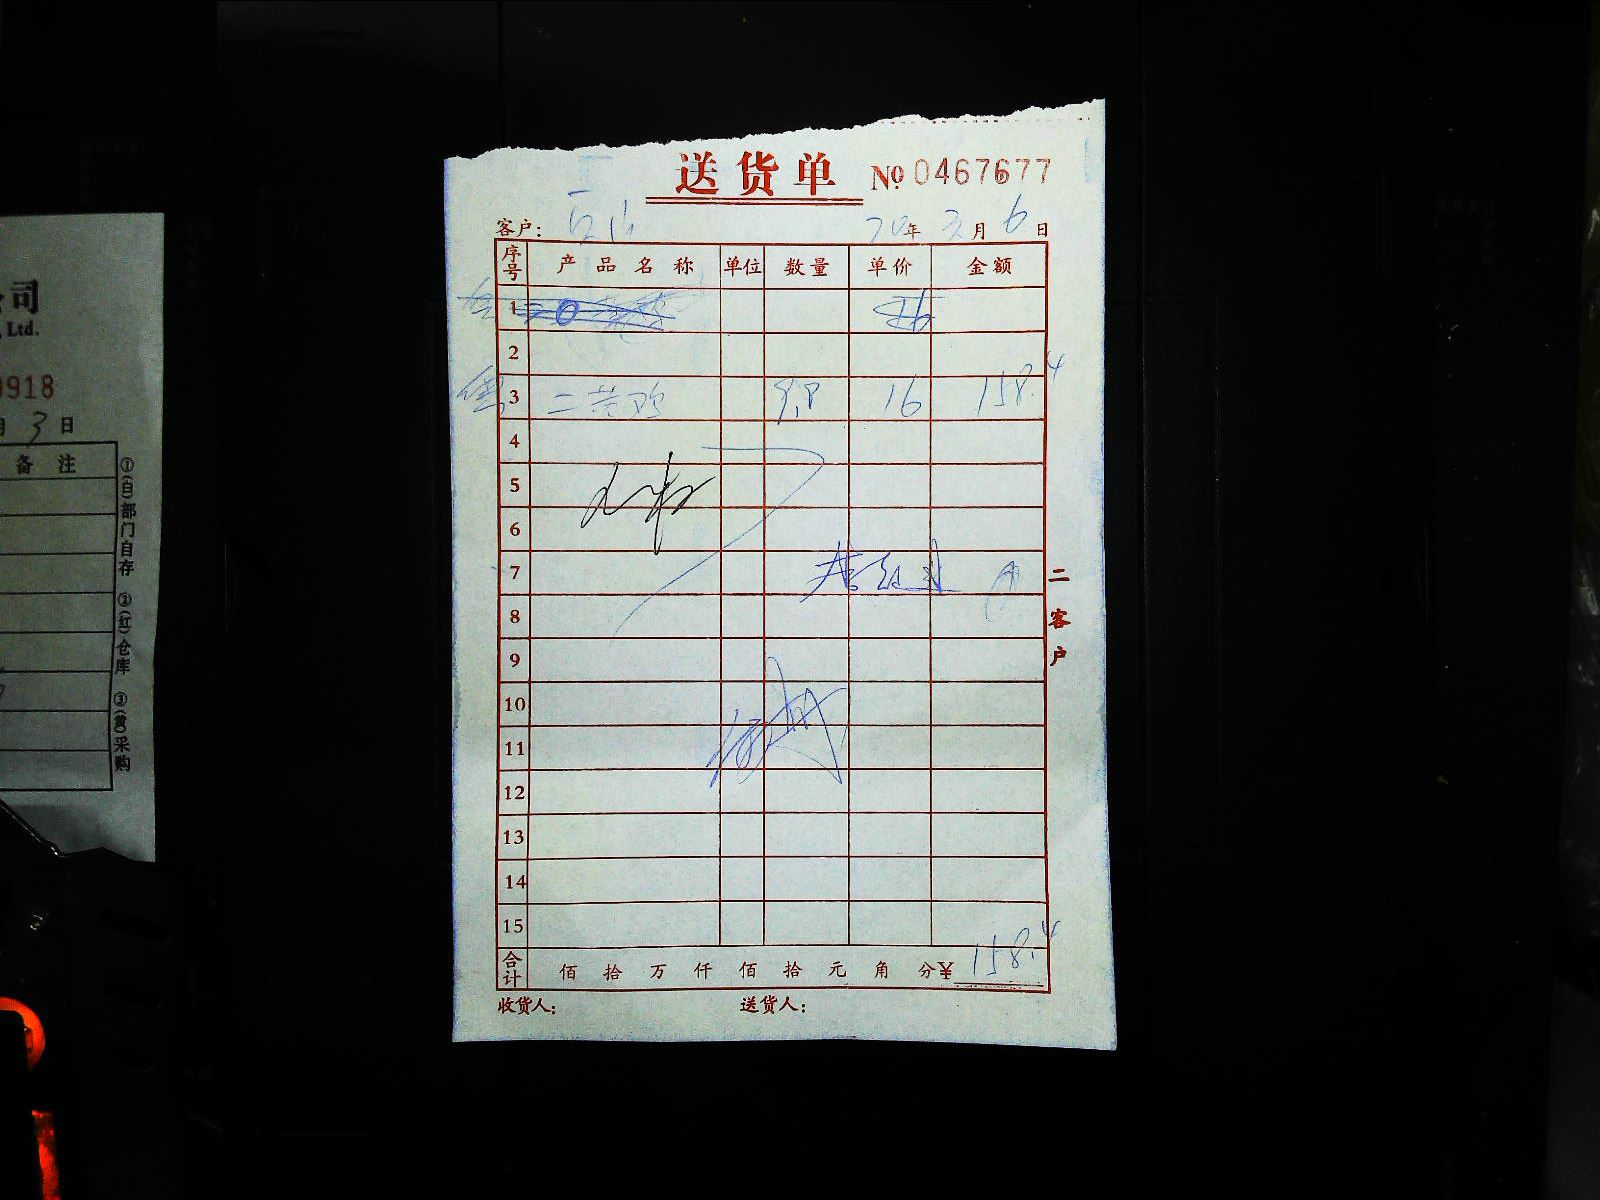 送货单 № 0467677
客户: 年 月 6 日
序号 产品名称 单位 数量 单价 金额
1
2
3 二黄鸡 9.8 16 158.4
4
5
6
7
8
9
10
11
12
13
14
15
合计 佰 拾 万 仟 佰 拾 元 角 分 ¥ 158.4
收货人: 送货人:
二客户
公司
Ltd.
0918
月 3 日
备注
①(白)部门自存 ②(红)仓库 ③(黄)采购